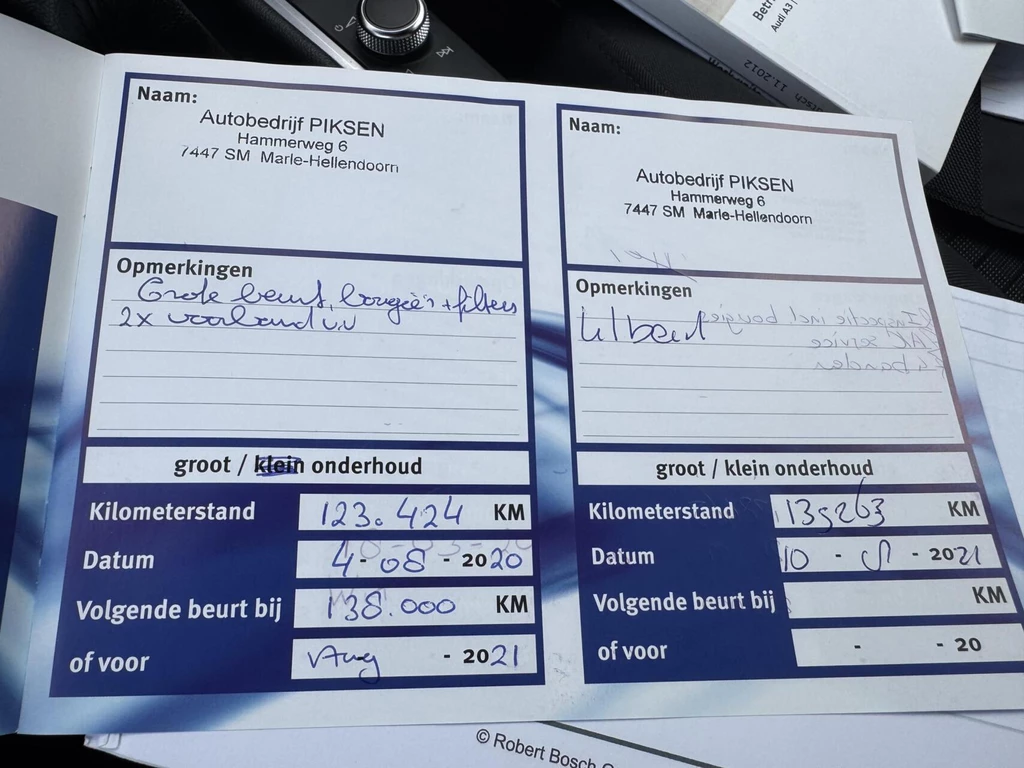 Naam:
Autobedrijf PIKSEN
Hammerweg 6
7447 SM Marle-Hellendoorn
Opmerkingen
Grote beurt, bougie's + filters
2x voorband v.v
groot / klein onderhoud
Kilometerstand 123.424 KM
Datum 4-08 - 2020
Volgende beurt bij 138.000 KM
of voor Aug - 2021
Naam:
Autobedrijf PIKSEN
Hammerweg 6
7447 SM Marle-Hellendoorn
Opmerkingen
groot / klein onderhoud
Kilometerstand 139263 KM
Datum 10 - - 2021
Volgende beurt bij KM
of voor - - 20
© Robert Bosch
Audi A3
11.2012